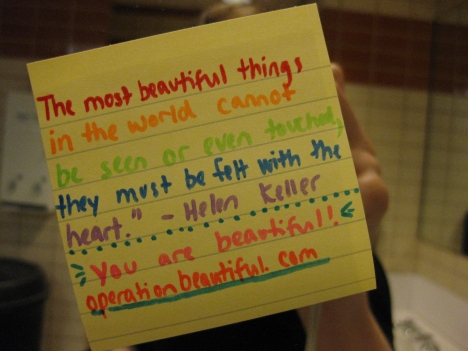 The most beautiful things
in the world cannot
be seen or even touched,
they must be felt with the
heart." - Helen Keller
You are beautiful!
operationbeautiful.com